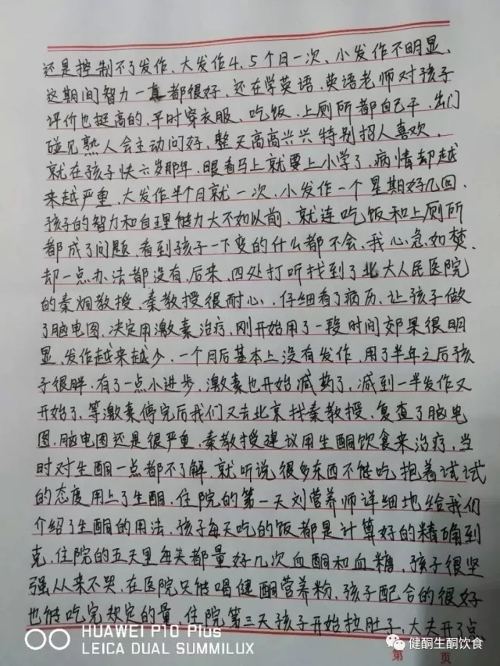 还是控制不了发作、大发作4.5个月一次、小发作不明显、
这期间智力一直都很好、还在学英语、英语老师对孩子
评价也挺高的、平时穿衣服、吃饭、上厕所都自己干、出门
碰见熟人会主动问好、整天高高兴兴特别招人喜欢、
就在孩子快六岁那年、眼看马上就要上小学了、病情却越
来越严重、大发作半个月就一次、小发作一个星期好几回、
孩子的智力和自理能力大不如以前、就连吃饭和上厕所
都成了问题、看到孩子一下变的什么都不会、我心急如焚、
却一点办法都没有、后来、四处打听找到了北大人民医院
的秦炯教授、秦教授很耐心、仔细看了病历、让孩子做
了脑电图、决定用激素治疗、刚开始用了一段时间效果很明
显、发作越来越少、一个月后基本上没有发作、用了半年之后孩
子很胖、有了一点小进步、激素也开始减药了、减到一半发作又
开始了、等激素停完后我们又去北京找秦教授、复查了脑电
图、脑电图还是很严重、秦教授建议用生酮饮食来治疗、当
时对生酮一点都不了解、就听说很多东西不能吃抱着试试
的态度用上了生酮、住院的第一天刘营养师详细地给我们
介绍了生酮的用法、孩子每天吃的饭都是计算好的精确到
克、住院的五天里每天都量好几次血酮和血糖、孩子很坚
强从来不哭、在医院只能喝健酮营养粉、孩子配合的很好
也能吃完规定的量、住院第三天孩子开始拉肚子、大夫开了点
第 页
HUAWEI P10 Plus
LEICA DUAL SUMMILUX
健酮生酮饮食